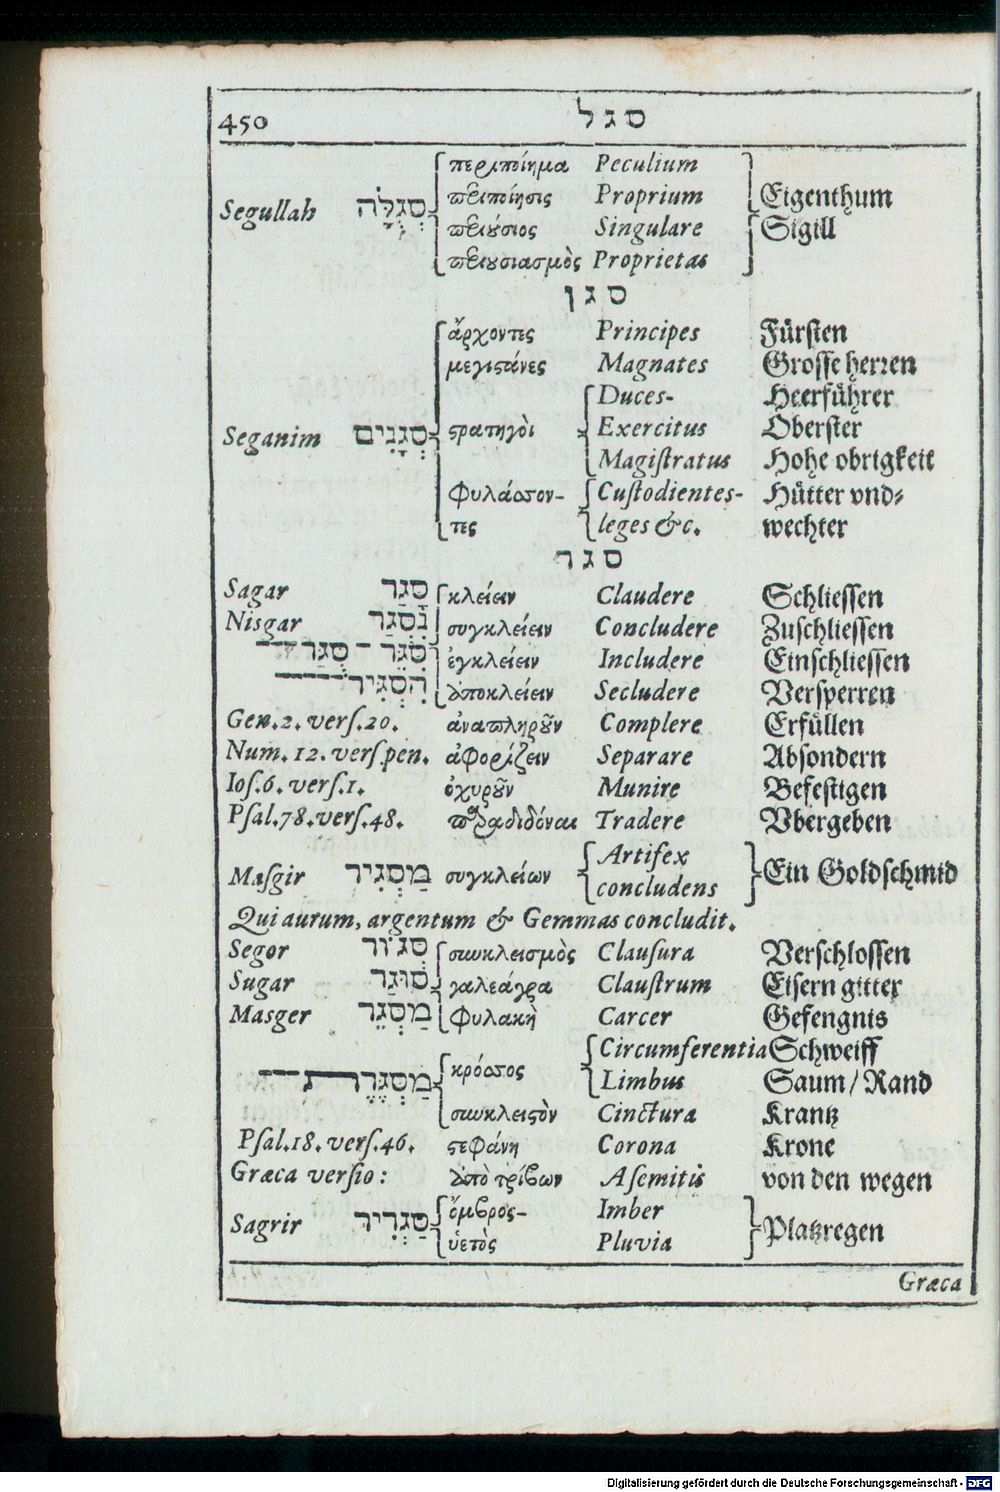 450 סגל
περιποίημα Peculium
περιποίησις Proprium Eigenthum
Segullah סְגֻלָּה
περιούσιος Singulare Sigill
περιουσιασμὸς Proprietas
סגן
ἄρχοντες Principes Fürsten
μεγιστάνες Magnates Grosse herren
Duces- Heerführer
Seganim סְגָנִים στρατηγοὶ Exercitus Oberster
Magiſtratus Hohe obrigkeit
φυλάσσον- Cuſtodientes- Hütter vnd⸗
τες leges &c. wechter
סגר
Sagar סָגַר κλείειν Claudere Schliessen
Nisgar נִסְגַּר συγκλείειν Concludere Zuschliessen
סֻגַּר - סִגֵּר ἐγκλείειν Includere Einschliessen
הִסְגִּיר ἀποκλείειν Secludere Versperren
Gen. 2. verſ. 20. ἀναπληροῦν Complere Erfüllen
Num. 12. verſ. pen. ἀφορίζειν Separare Absondern
Ioſ. 6. verſ. 1. ὀχυροῦν Munire Befestigen
Pſal. 78. verſ. 48. παραδιδόναι Tradere Vbergeben
Artifex
Maſgir מַסְגִּיר συγκλείων Ein Goldschmid
concludens
Qui aurum, argentum & Gemmas concludit.
Segor סְגוֹר συγκλεισμὸς Clauſura Verschlossen
Sugar סוּגַר γαλεάγρα Clauſtrum Eisern gitter
Masger מַסְגֵּר φυλακὴ Carcer Gefengnis
Circumferentia Schweiff
מִסְגֶּרֶת κρόσσος Limbus Saum / Rand
συγκλειστὸν Cinctura Krantz
Pſal. 18. verſ. 46. στεφάνη Corona Krone
Græca verſio: ἀπὸ τρίβων A ſemitis von den wegen
ὄμβρος- Imber
Sagrir סַגְרִיר Platzregen
ὑετὸς Pluvia
Græca
Digitalisierung gefördert durch die Deutsche Forschungsgemeinschaft - DFG